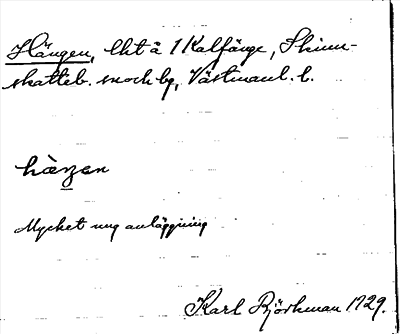 Hängen, lht å 1 Kalfänge, Skinn-
skatteb. snoch by, Västmanl. l.
hàŋen
Mycket ung anläggning
Karl Björkman 1929.